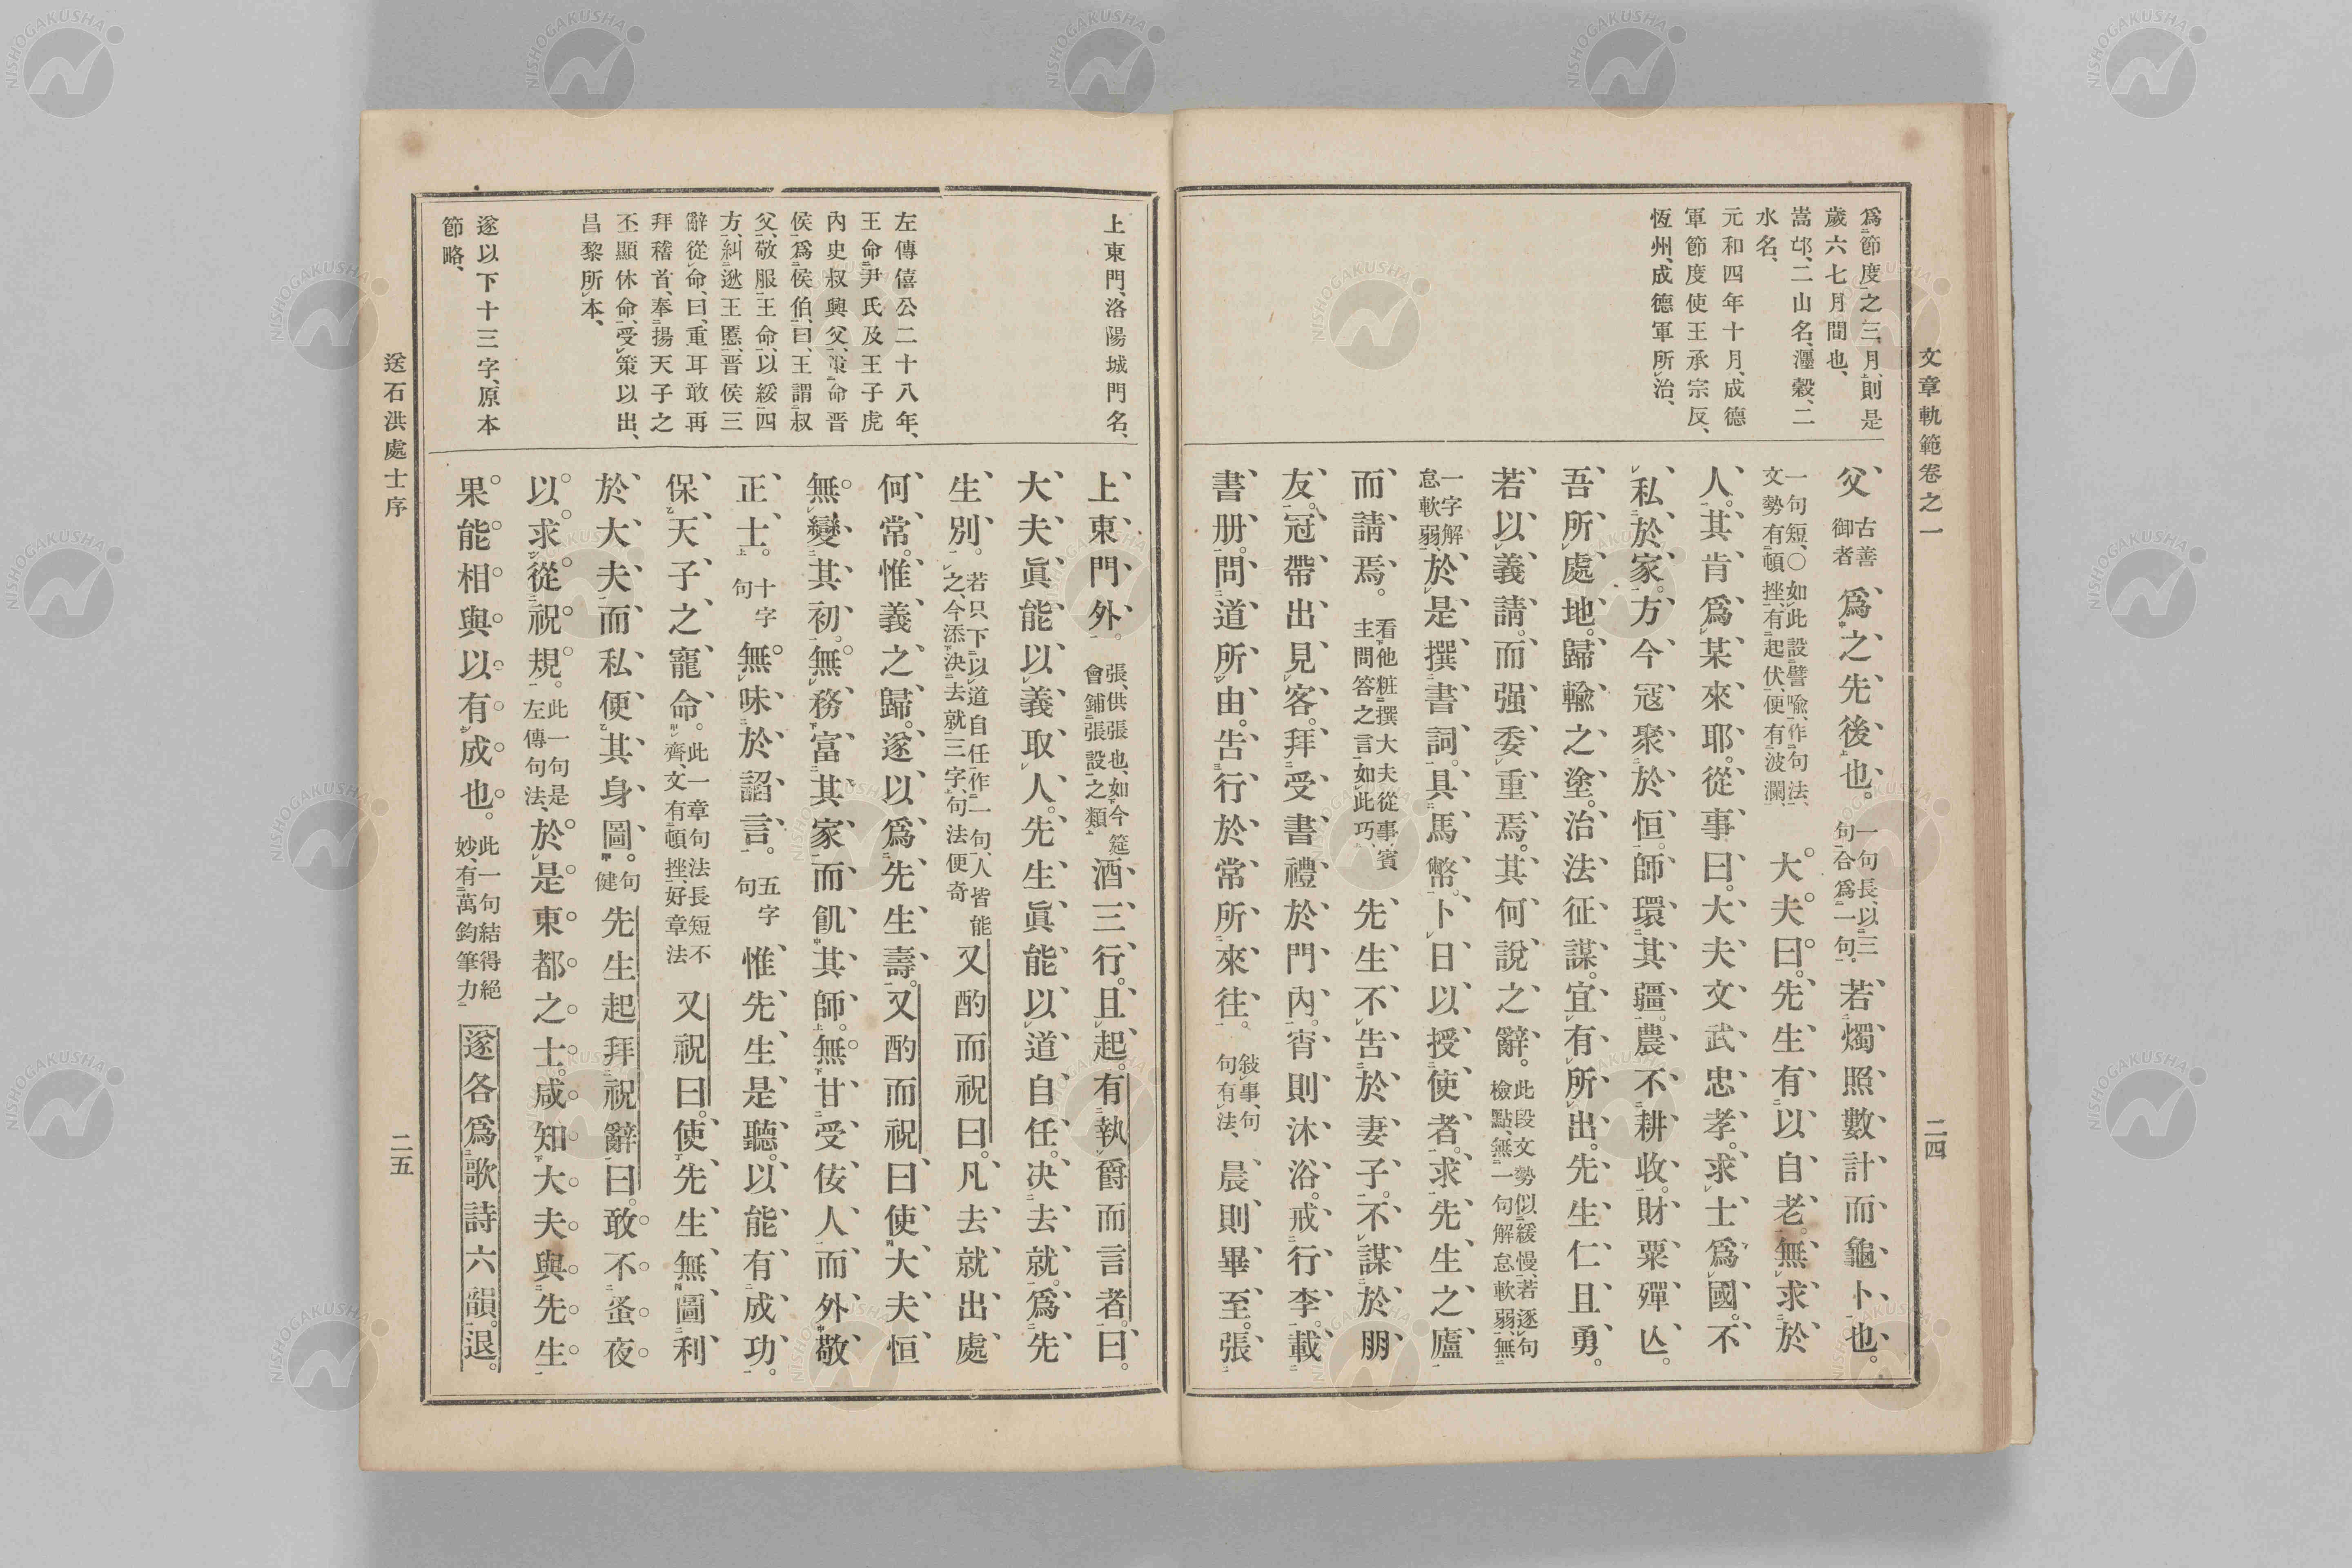 文章軌範卷之一
二四
爲節度之三月、則是
歲六七月間也、
嵩邙、二山名、瀍穀、二
水名、
元和四年十月、成德
軍節度使王承宗反、
恆州、成德軍所治、
父、古善御者爲之先後也。一句長、以三句合爲一句、若燭照數計而龜卜也。
一句短、〇如此設譬喩、作句法、文勢有頓挫、有起伏、便有波瀾、大夫曰。先生有以自老。無求於
人。其肯爲某來耶。從事曰。大夫文武忠孝。求士爲國。不
私於家。方今寇聚於恒。師環其疆。農不耕收。財粟殫亾。
吾所處地。歸輸之塗。治法征謀。宜有所出。先生仁且勇。
若以義請。而强委重焉。其何說之辭。此段文勢似緩慢、若逐句檢點、無一句解怠軟弱、無
一字解怠軟弱、於是撰書詞。具馬幣。卜日以授使者。求先生之廬
而請焉。看他粧撰大夫從事、賓主問答之言、如此巧、先生不告於妻子。不謀於朋
友。冠帶出見客。拜受書禮於門內。宵則沐浴。戒行李。載
書册。問道所由。告行於常所來往。敍事、句句有法、晨則畢至。張
上東門、洛陽城門名、
左傳僖公二十八年、
王命尹氏及王子虎
內史叔興父、策命晋
侯爲侯伯、曰、王謂叔
父、敬服王命、以綏四
方、糾逖王慝、晋侯三
辭從命、曰、重耳敢再
拜稽首、奉揚天子之
丕顯休命、受策以出、
昌黎所本、
遂以下十三字、原本
節略、
上東門外。張、供張也、如今筵會鋪張設之類、酒三行。且起。有執爵而言者。曰。
大夫眞能以義取人。先生眞能以道自任。決去就。爲先
生別。若只下以道自任作一句、人皆能之、今添決去就三字、句法便奇又酌而祝曰。凡去就出處
何常。惟義之歸。遂以爲先生壽。又酌而祝曰、使大夫恒
無變其初。無務富其家而飢其師。無甘受佞人。而外敬
正士。十字句無味於諂言。五字句惟先生是聽。以能有成功。
保天子之寵命。此一章句法長短不齊、文有頓挫、好章法又祝曰。使先生無圖利
於大夫。而私便其身圖。句健先生起拜祝辭曰。敢不蚤夜
以求從祝規。此一句是左傳句法、於是東都之士。咸知大夫與先生
果能相與以有成也。此一句結得絕妙、有萬鈞筆力遂各爲歌詩六韻。退。
送石洪處士序
二五